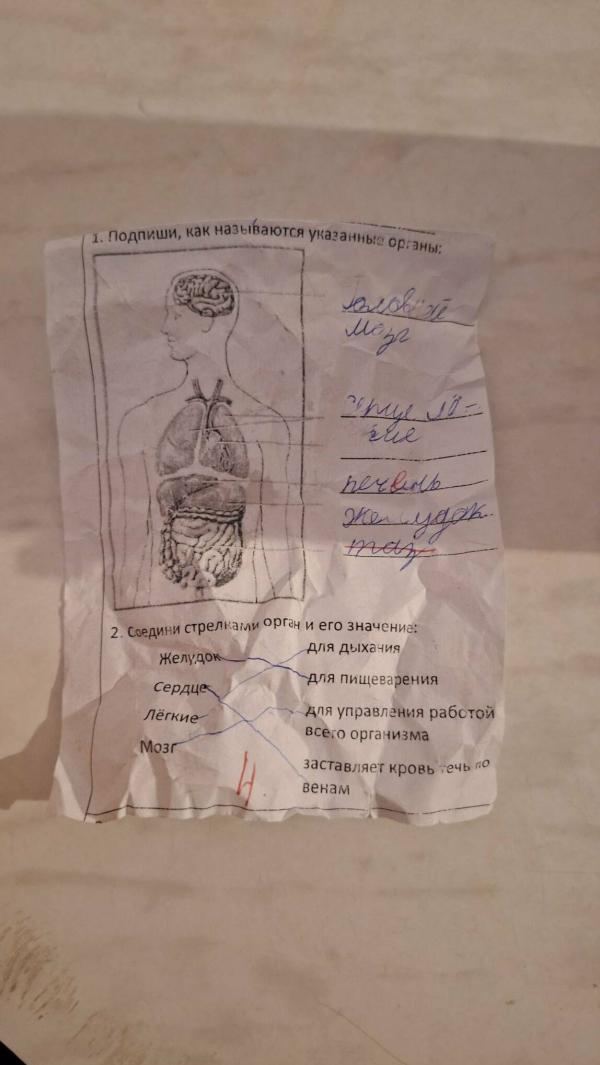 1. Подпиши, как называются указанные органы:
головной
мозг
лё-
печень
желудок
таз
2. Соедини стрелками орган и его значение:
Желудок
для дыхания
Сердце
для пищеварения
Лёгкие
для управления работой
всего организма
Мозг
заставляет кровь течь по
венам
4